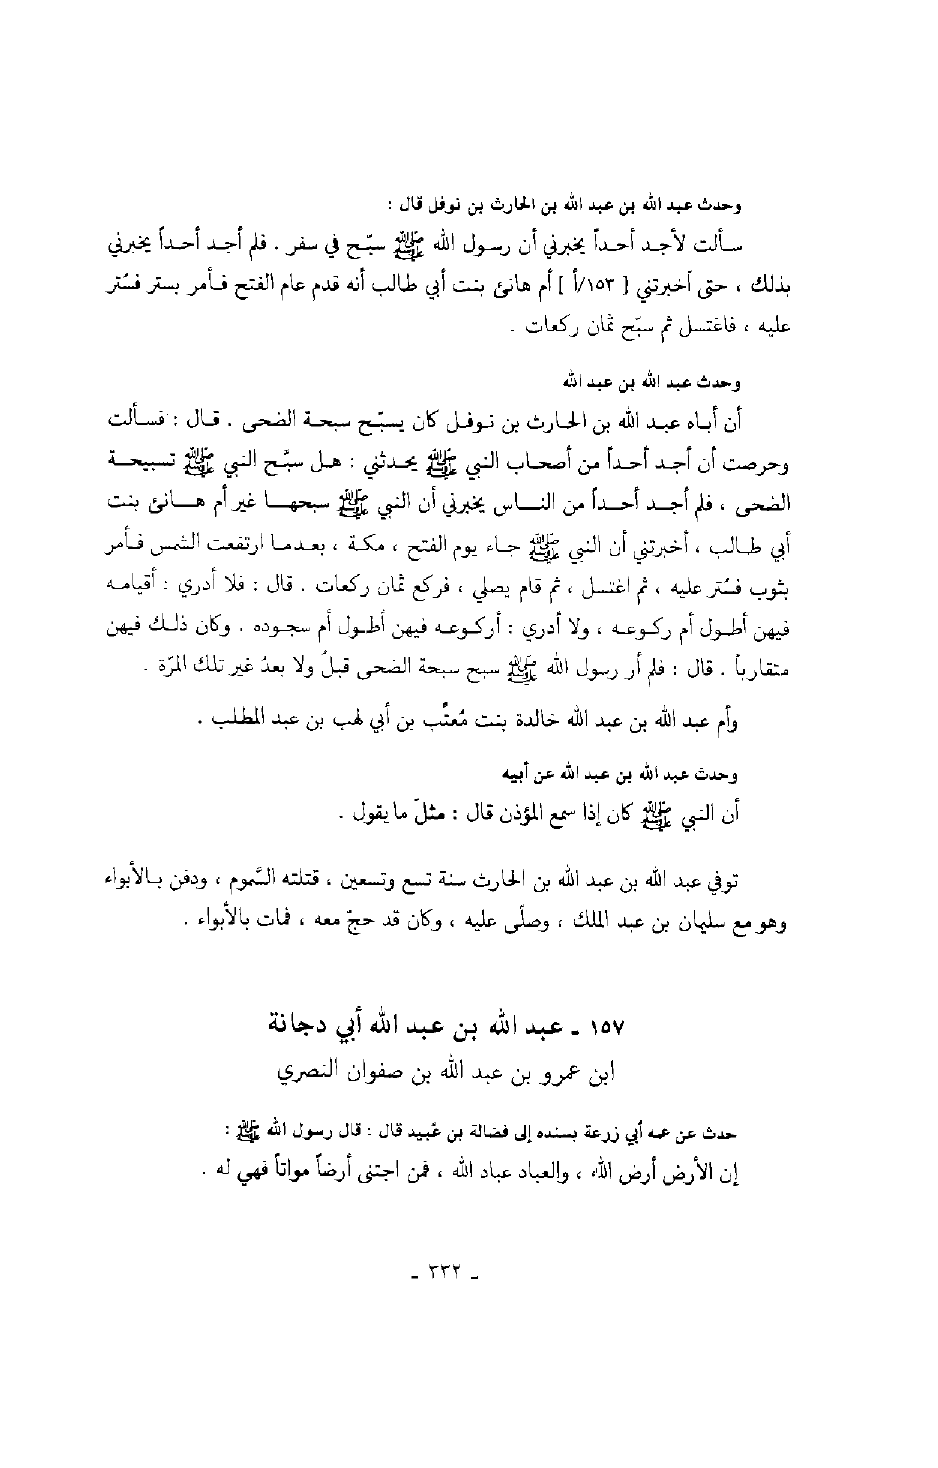 وحدث عبد الله بن عبد الله بن الحارث بن نوفل قال :
سألت لأجد أحداً يخبرني أن رسول الله ﷺ سبّح في سفر . فلم أجد أحداً يخبرني
بذلك ، حتى أخبرتني [ ١٥٣/أ ] أم هانئ بنت أبي طالب أنه قدم عام الفتح فأمر بستر فسُتر
عليه ، فاغتسل ثم سبّح ثمان ركعات .
وحدث عبد الله بن عبد الله
أن أباه عبد الله بن الحارث بن نوفل كان يسبّح سبحة الضحى . قال : فسألت
وحرصت أن أجد أحداً من أصحاب النبي ﷺ يحدثني : هل سبّح النبي ﷺ تسبيحة
الضحى ، فلم أجد أحداً من الناس يخبرني أن النبي ﷺ سبحها غير أم هانئ بنت
أبي طالب ، أخبرتني أن النبي ﷺ جاء يوم الفتح ، مكة ، بعدما ارتفعت الشمس فأمر
بثوب فسُتر عليه ، ثم اغتسل ، ثم قام يصلي ، فركع ثمان ركعات . قال : فلا أدري : أقيامه
فيهن أطول أم ركوعه ، ولا أدري : أركوعه فيهن أطول أم سجوده . وكان ذلك فيهن
متقارباً . قال : فلم أر رسول الله ﷺ سبح سبحة الضحى قبلُ ولا بعدُ غير تلك المرّة .
وأم عبد الله بن عبد الله خالدة بنت مُعتَّب بن أبي لهب بن عبد المطلب .
وحدث عبد الله بن عبد الله عن أبيه
أن النبي ﷺ كان إذا سمع المؤذن قال : مثلَ ما يقول .
توفي عبد الله بن عبد الله بن الحارث سنة تسع وتسعين ، قتلته السَّموم ، ودفن بالأبواء
وهو مع سليمان بن عبد الملك ، وصلّى عليه ، وكان قد حجّ معه ، فمات بالأبواء .
١٥٧ ـ عبد الله بن عبد الله أبي دجانة
ابن عمرو بن عبد الله بن صفوان النصري
حدث عن عمه أبي زرعة بسنده إلى فضالة بن عُبيد قال : قال رسول الله ﷺ :
إن الأرض أرض الله ، والعباد عباد الله ، فمن اجتنى أرضاً مواتاً فهي له .
ـ ٣٣٢ ـ